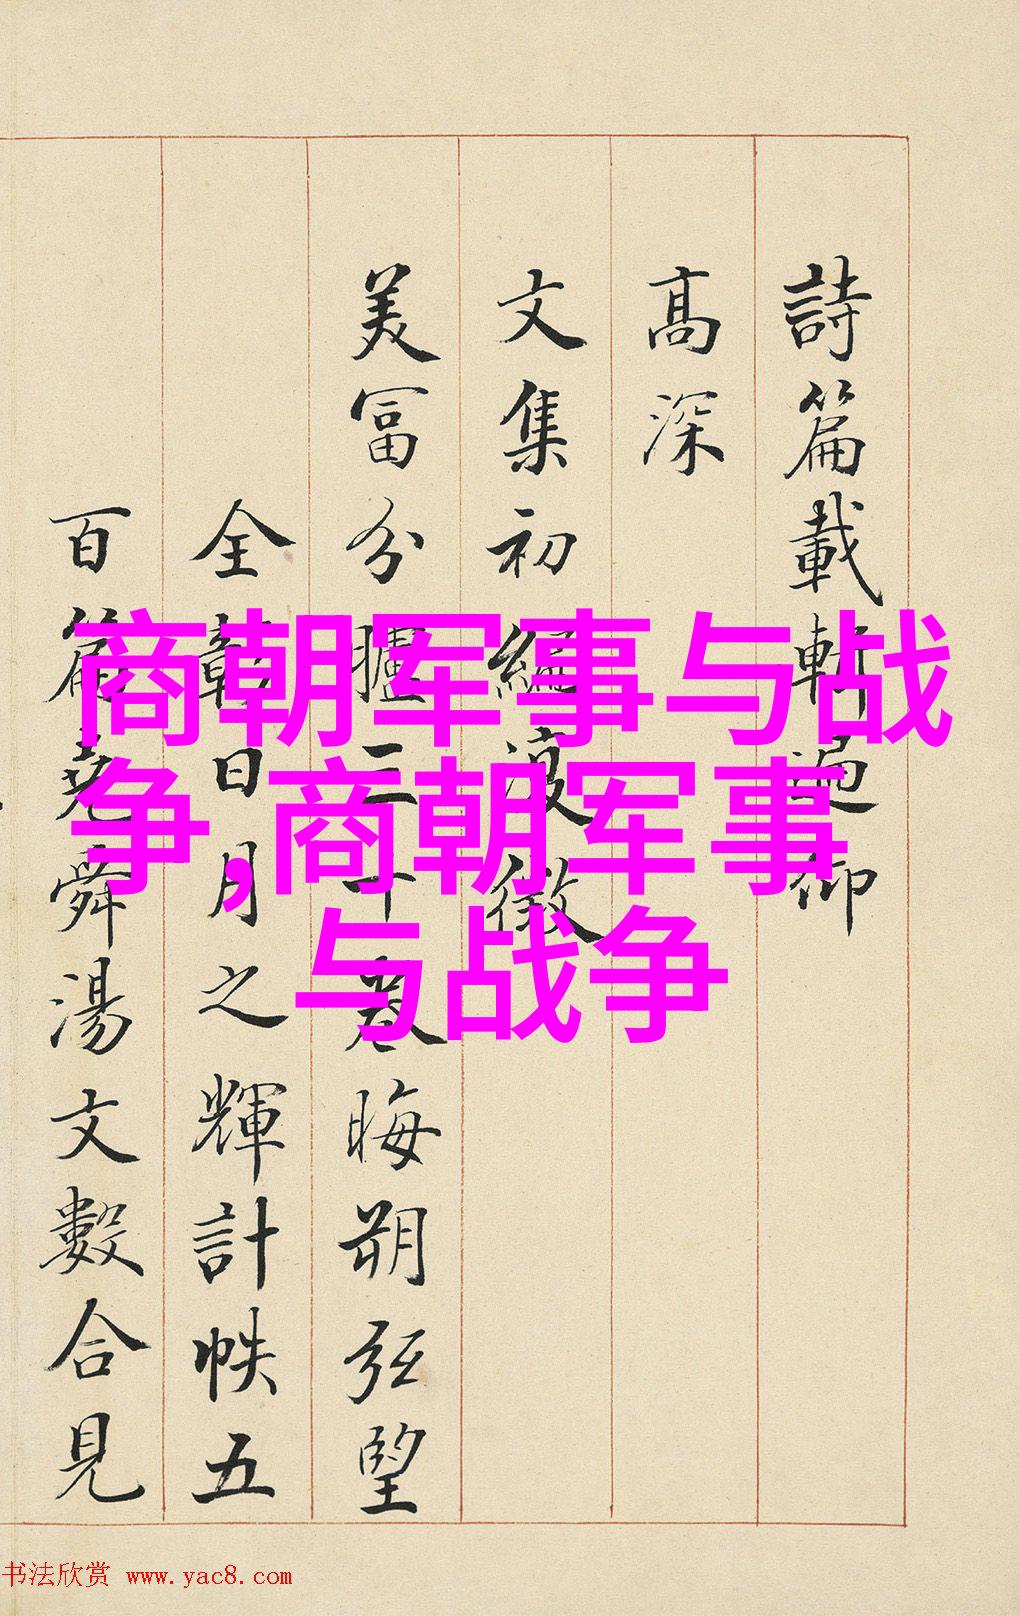 詩篇載仰
髙深
文集初編徵
美冨分臚三十卷晦朔弦望
全彰日月之輝計帙五
百篇堯舜湯文數合見
商朝军事与战
争,商朝军事
与战争
书法欣赏 www.yac8.com